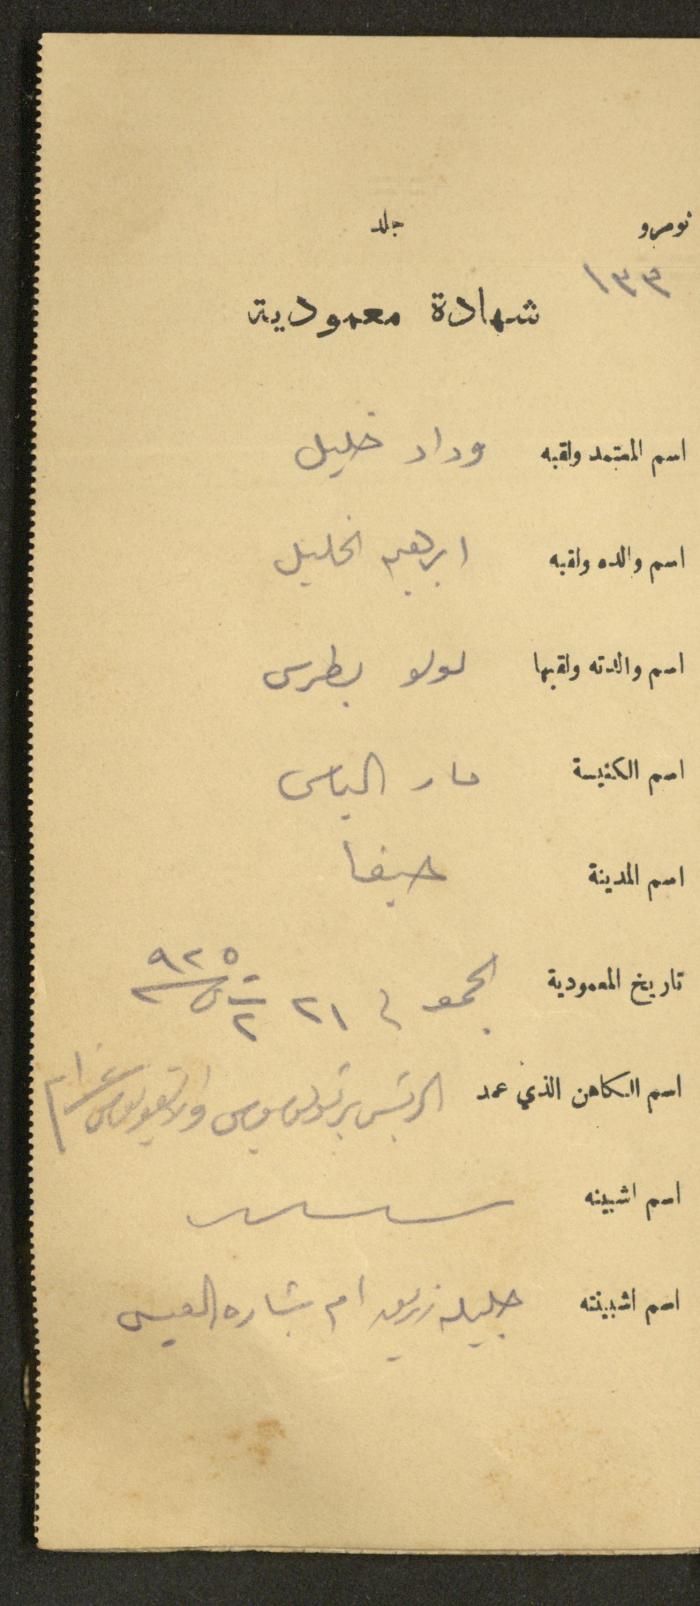 نومرو جلد
١٣٣
شهادة معمودية
اسم المعتمد ولقبه وداد خليل
اسم والده ولقبه ابرهيم الخليل
اسم والدته ولقبها لولو بطرس
اسم الكنيسة مار الياس
اسم المدينة حيفا
تاريخ المعمودية في ٢١ ت ٢ س ٩٢٥
اسم الكاهن الذي عمد
اسم اشبينه
اسم اشبينته جليله زريق ام بشاره العيسى